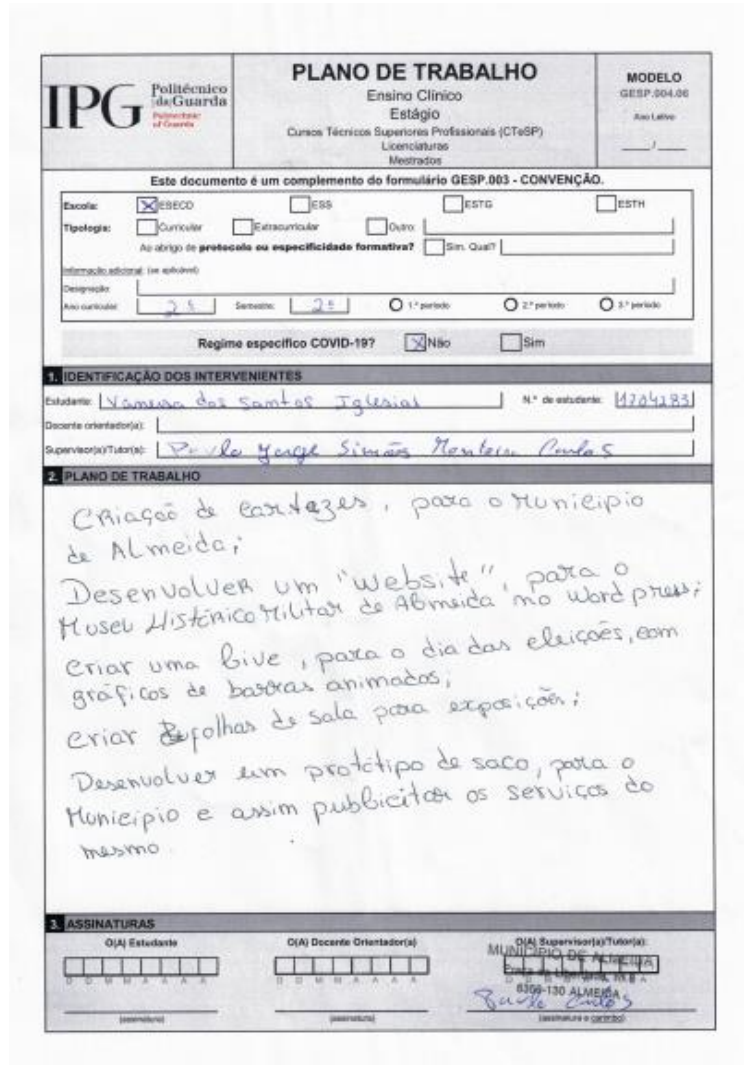 IPG Politécnico da Guarda
Polytechnic of Guarda
PLANO DE TRABALHO
Ensino Clínico
Estágio
Cursos Técnicos Superiores Profissionais (CTeSP)
Licenciaturas
Mestrados
MODELO
GESP.004.06
Ano Letivo
___/___
Este documento é um complemento do formulário GESP.003 - CONVENÇÃO.
Escola: ESECD ESS ESTG ESTH
Tipologia: Curricular Extracurricular Outro:
Ao abrigo de protocolo ou especificidade formativa? Sim. Qual?
Informação adicional: (se aplicável)
Designação:
Ano curricular: 2º Semestre: 2º 1.º período 2.º período 3.º período
Regime específico COVID-19? Não Sim
1. IDENTIFICAÇÃO DOS INTERVENIENTES
Estudante: Vanessa dos Santos Iglesias N.º de estudante: 1704283
Docente orientador(a):
Supervisor(a)/Tutor(a): Paulo Jorge Simões Monteiro Carlos
2. PLANO DE TRABALHO
Criação de cartazes, para o Município
de Almeida;
Desenvolver um "website", para o
Museu Histórico Militar de Almeida no wordpress;
Criar uma live, para o dia das eleições, com
gráficos de barras animados;
Criar folhas de sala para exposições;
Desenvolver um protótipo de saco, para o
Município e assim publicitar os serviços do
mesmo.
3. ASSINATURAS
O(A) Estudante O(A) Docente Orientador(a) O(A) Supervisor(a)/Tutor(a):
MUNICÍPIO DE ALMEIDA
D D M M A A A A D D M M A A A A
6350-130 ALMEIDA
Paulo Carlos
(assinatura) (assinatura) (assinatura e carimbo)